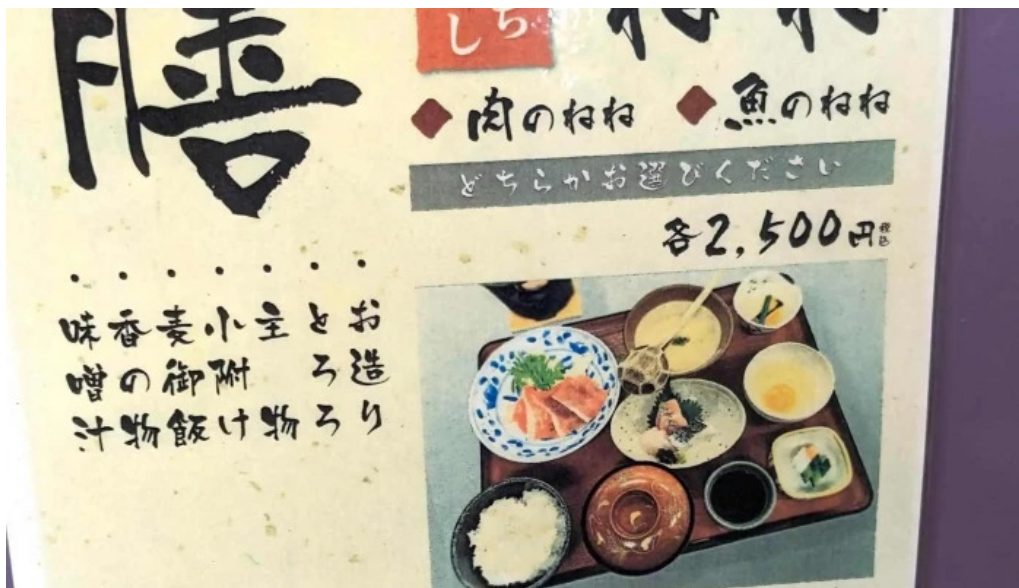 膳
ねね
◆肉のねね ◆魚のねね
どちらかお選びください
各2,500円税込
・お造り
・とろろ
・主物
・小附け
・麦御飯
・香の物
・味噌汁